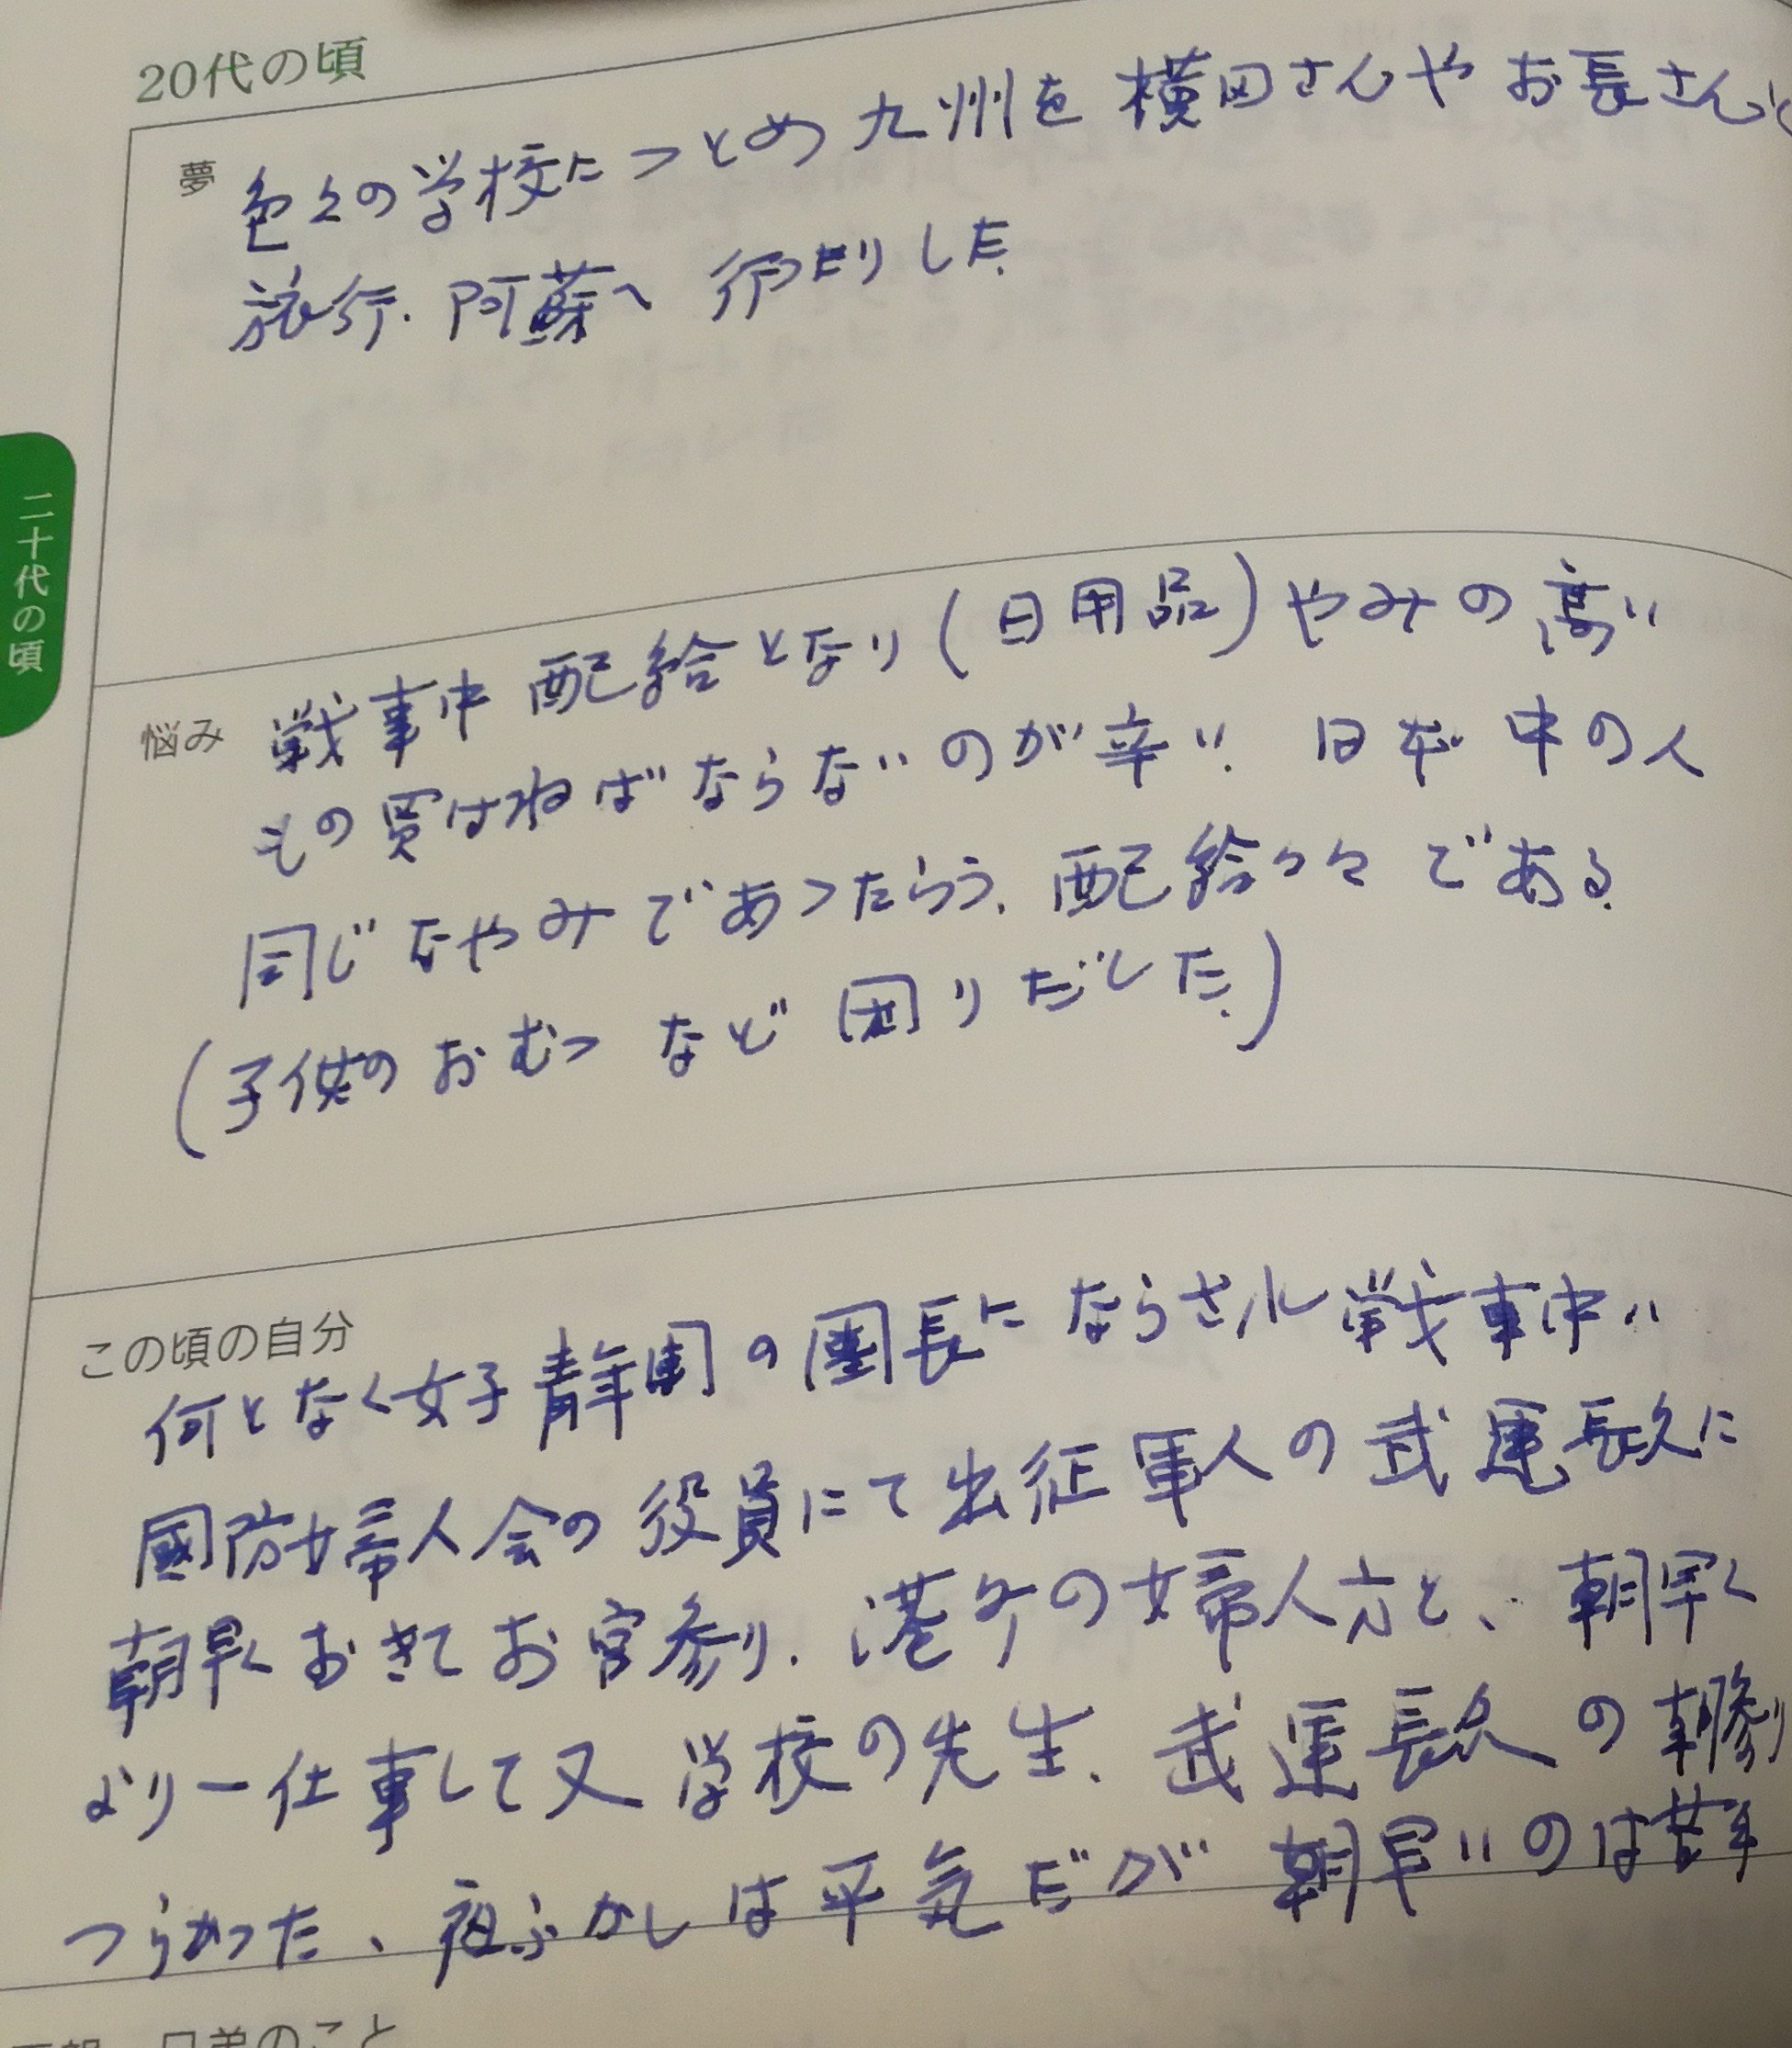 20代の頃
夢
色々の学校につとめ九州を横田さんやお長さんと
旅行.阿蘇へ行ったりした.
二十代の頃
悩み
戦事中配給となり(日用品)やみの高い
もの買はねばならないのが辛い.日本中の人
同じなやみであったらう.配給々々である.
(子供のおむつなど困りだした.)
この頃の自分
何となく女子青年団の團長にならされ戦事中い
國防婦人会の役員にて出征軍人の武運長久に
朝早くおきてお宮参り.港町の婦人方と、朝早く
より一仕事して又学校の先生、武運長久の朝参り
つらかった、夜ふかしは平気だが朝早いのは苦手
兄弟のこと